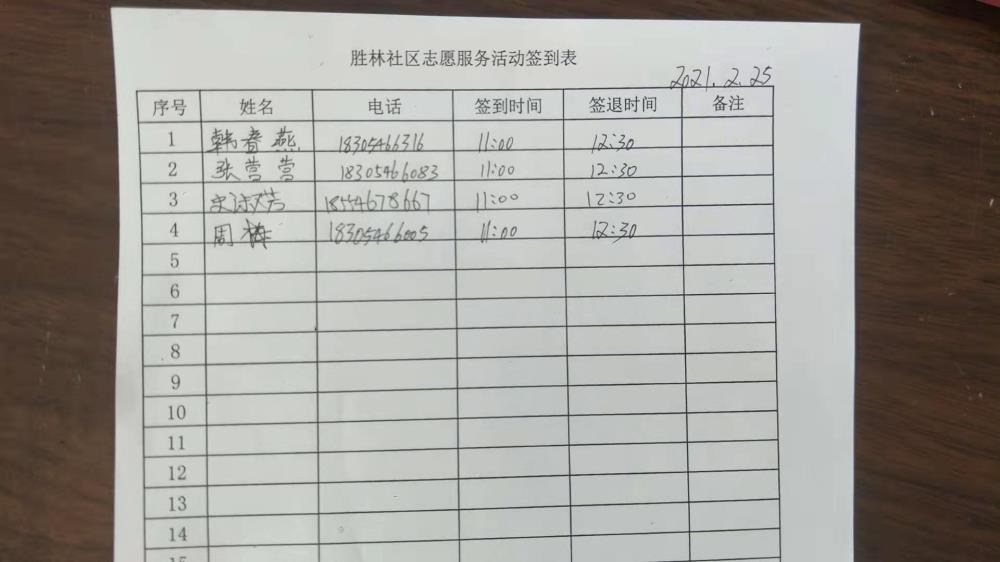 胜林社区志愿服务活动签到表
2021.2.25
序号 姓名 电话 签到时间 签退时间 备注
1 韩春燕 18305466316 11:00 12:30
2 张营营 18305466083 11:00 12:30
3 18554678667 11:00 12:30
4 周梅 18305466005 11:00 12:30
5
6
7
8
9
10
11
12
13
14
15